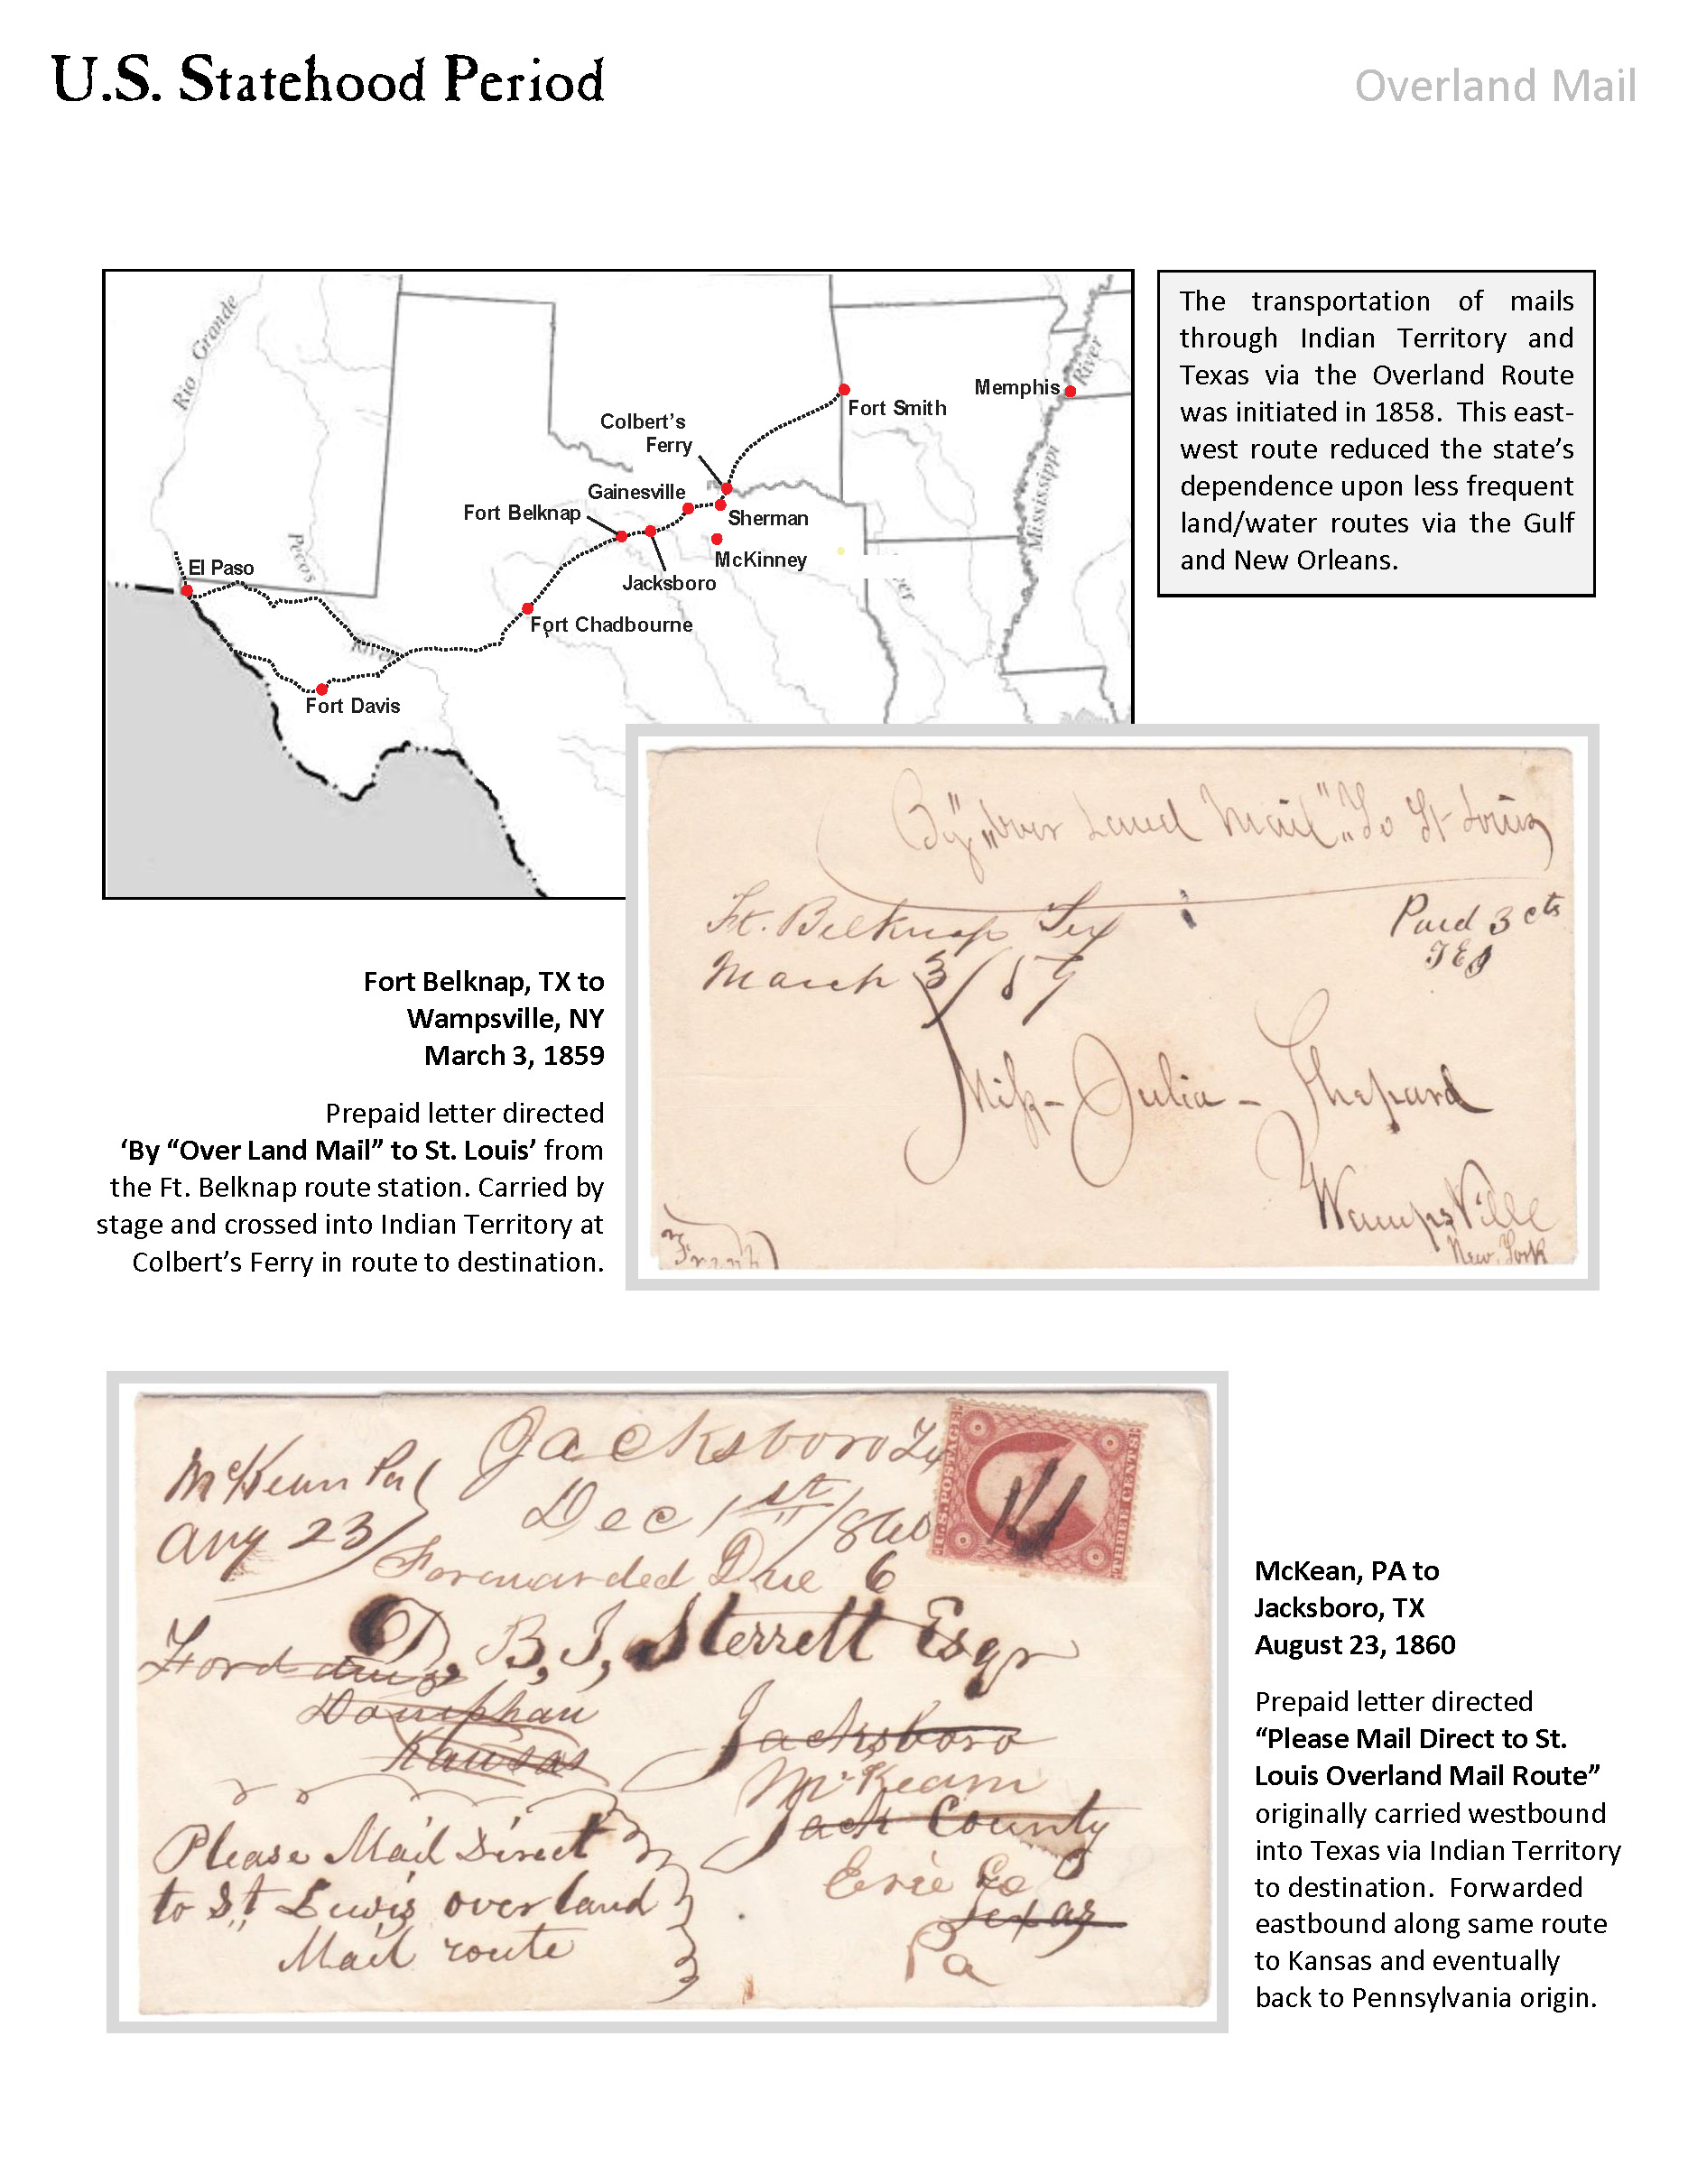 U.S. Statehood Period
Overland Mail
Rio Grande
Pecos
River
El Paso
Fort Davis
Fort Chadbourne
Fort Belknap
Jacksboro
Gainesville
Colbert's
Ferry
Sherman
McKinney
Fort Smith
Memphis
Mississippi
River
The transportation of mails
through Indian Territory and
Texas via the Overland Route
was initiated in 1858. This east-
west route reduced the state's
dependence upon less frequent
land/water routes via the Gulf
and New Orleans.
By "Over Land Mail" To St Louis
Ft. Belknap Tex
March 3/59
Paid 3 cts
Miss Julia Shepard
WampsVille
New York
Fort Belknap, TX to
Wampsville, NY
March 3, 1859
Prepaid letter directed
‘By “Over Land Mail” to St. Louis’ from
the Ft. Belknap route station. Carried by
stage and crossed into Indian Territory at
Colbert's Ferry in route to destination.
McKean Pa
Aug 23
Jacksboro Tx
Dec 1st/860
Forwarded Due 6
U.S. POSTAGE
THREE CENTS
D, B, I, Sterrett Esqr
Doniphan
Kansas
Jacksboro
McKean
Jack County
Erie Co
Texas
Pa
Please Mail Direct
to St Lewis overland
Mail route
McKean, PA to
Jacksboro, TX
August 23, 1860
Prepaid letter directed
“Please Mail Direct to St.
Louis Overland Mail Route”
originally carried westbound
into Texas via Indian Territory
to destination. Forwarded
eastbound along same route
to Kansas and eventually
back to Pennsylvania origin.